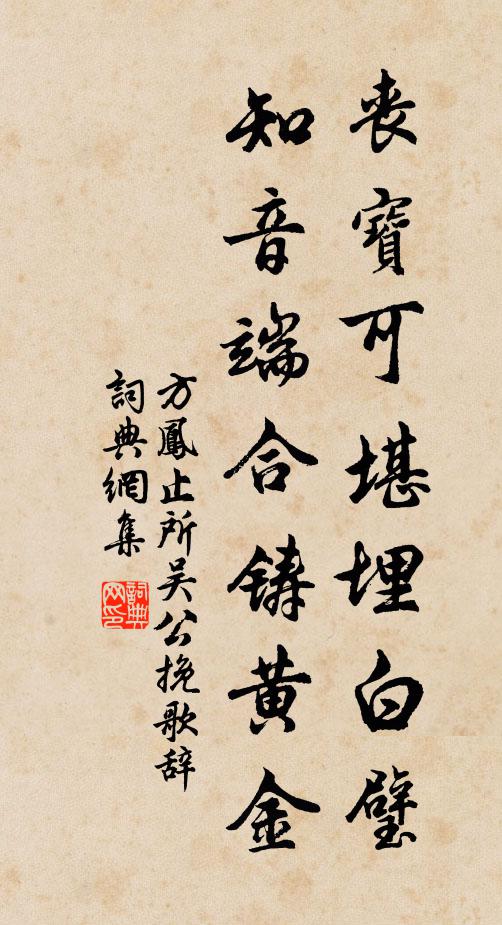 喪寶可堪埋白璧
知音端合鑄黃金
方鳳止所吴公挽歌辞
詞典網集
詞典網印